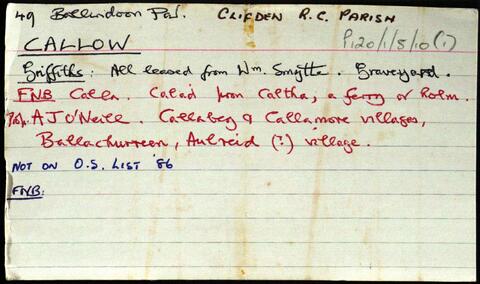 49 Ballindoon Par. CLIFDEN R.C. PARISH
P120/1/5/10(i)
CALLOW
Griffiths: All leased from Wm. Smythe. Graveyard.
FNB Calla. Calad from Caltha, a ferry or holm.
Prop. A J O'Neill. Callabeg & Callamore villages,
Ballachurreen, Aulreid (?) village.
NOT ON O.S. LIST '86
FNB: